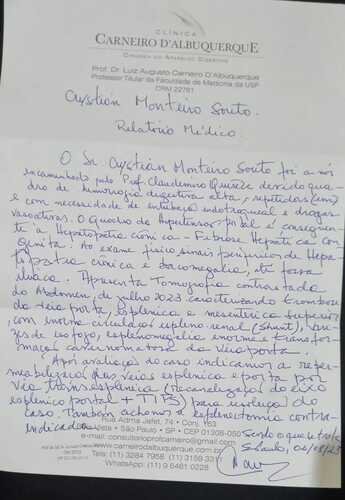 CLÍNICA
CARNEIRO D'ALBUQUERQUE
CIRURGIA DO APARELHO DIGESTIVO
Prof. Dr. Luiz Augusto Carneiro D'Albuquerque
Professor Titular da Faculdade de Medicina da USP
CRM 22761
Cystian Monteiro Souto
Relatório Médico
O Sr Cystian Monteiro Souto foi a nós
encaminhado pelo Prof. Claudemiro Quireze devido qua-
dro de hemorragia digestiva alta, repetidas (em)
e com necessidade de entubação endotraqueal e drogas
vasoativas. O Quadro de hipertensão portal é consequen-
te à Hepatopatia crônica - Fibrose Hepática con-
gênita. Ao exame físico sinais periféricos de Hepa-
topatia crônica e baçomegalia, até fossa
ilíaca. Apresenta Tomografia contrastada
do Abdomen, de julho 2023 caracterizando trombose
da veia porta, esplenica e mesentérica superior
, com enorme circulação espleno-renal (Shunt), vari-
zes de esofago, esplenomegalia enorme e transfor-
mação cavernomatosa da Veia porta.
Após avaliação do caso indicamos a reper-
meabilização das veias esplenica e porta por
via transesplenica (recanalização do eixo
esplenico portal + TIPS) para resolução do
caso. Também achamos a esplenectomia contra-
indicada
Rua Adma Jafet, 74 - Conj. 163
Bela Vista • São Paulo • SP • CEP 01308-050
e-mail: consultorioprofcarneiro@gmail.com
www.carneirodalbuquerque.com.br
Tels: (11) 3284 7956 (11) 3159 3311
WhatsApp (11) 9 6481 0228
Sendo o que se trata
S. Paulo, 04/08/23